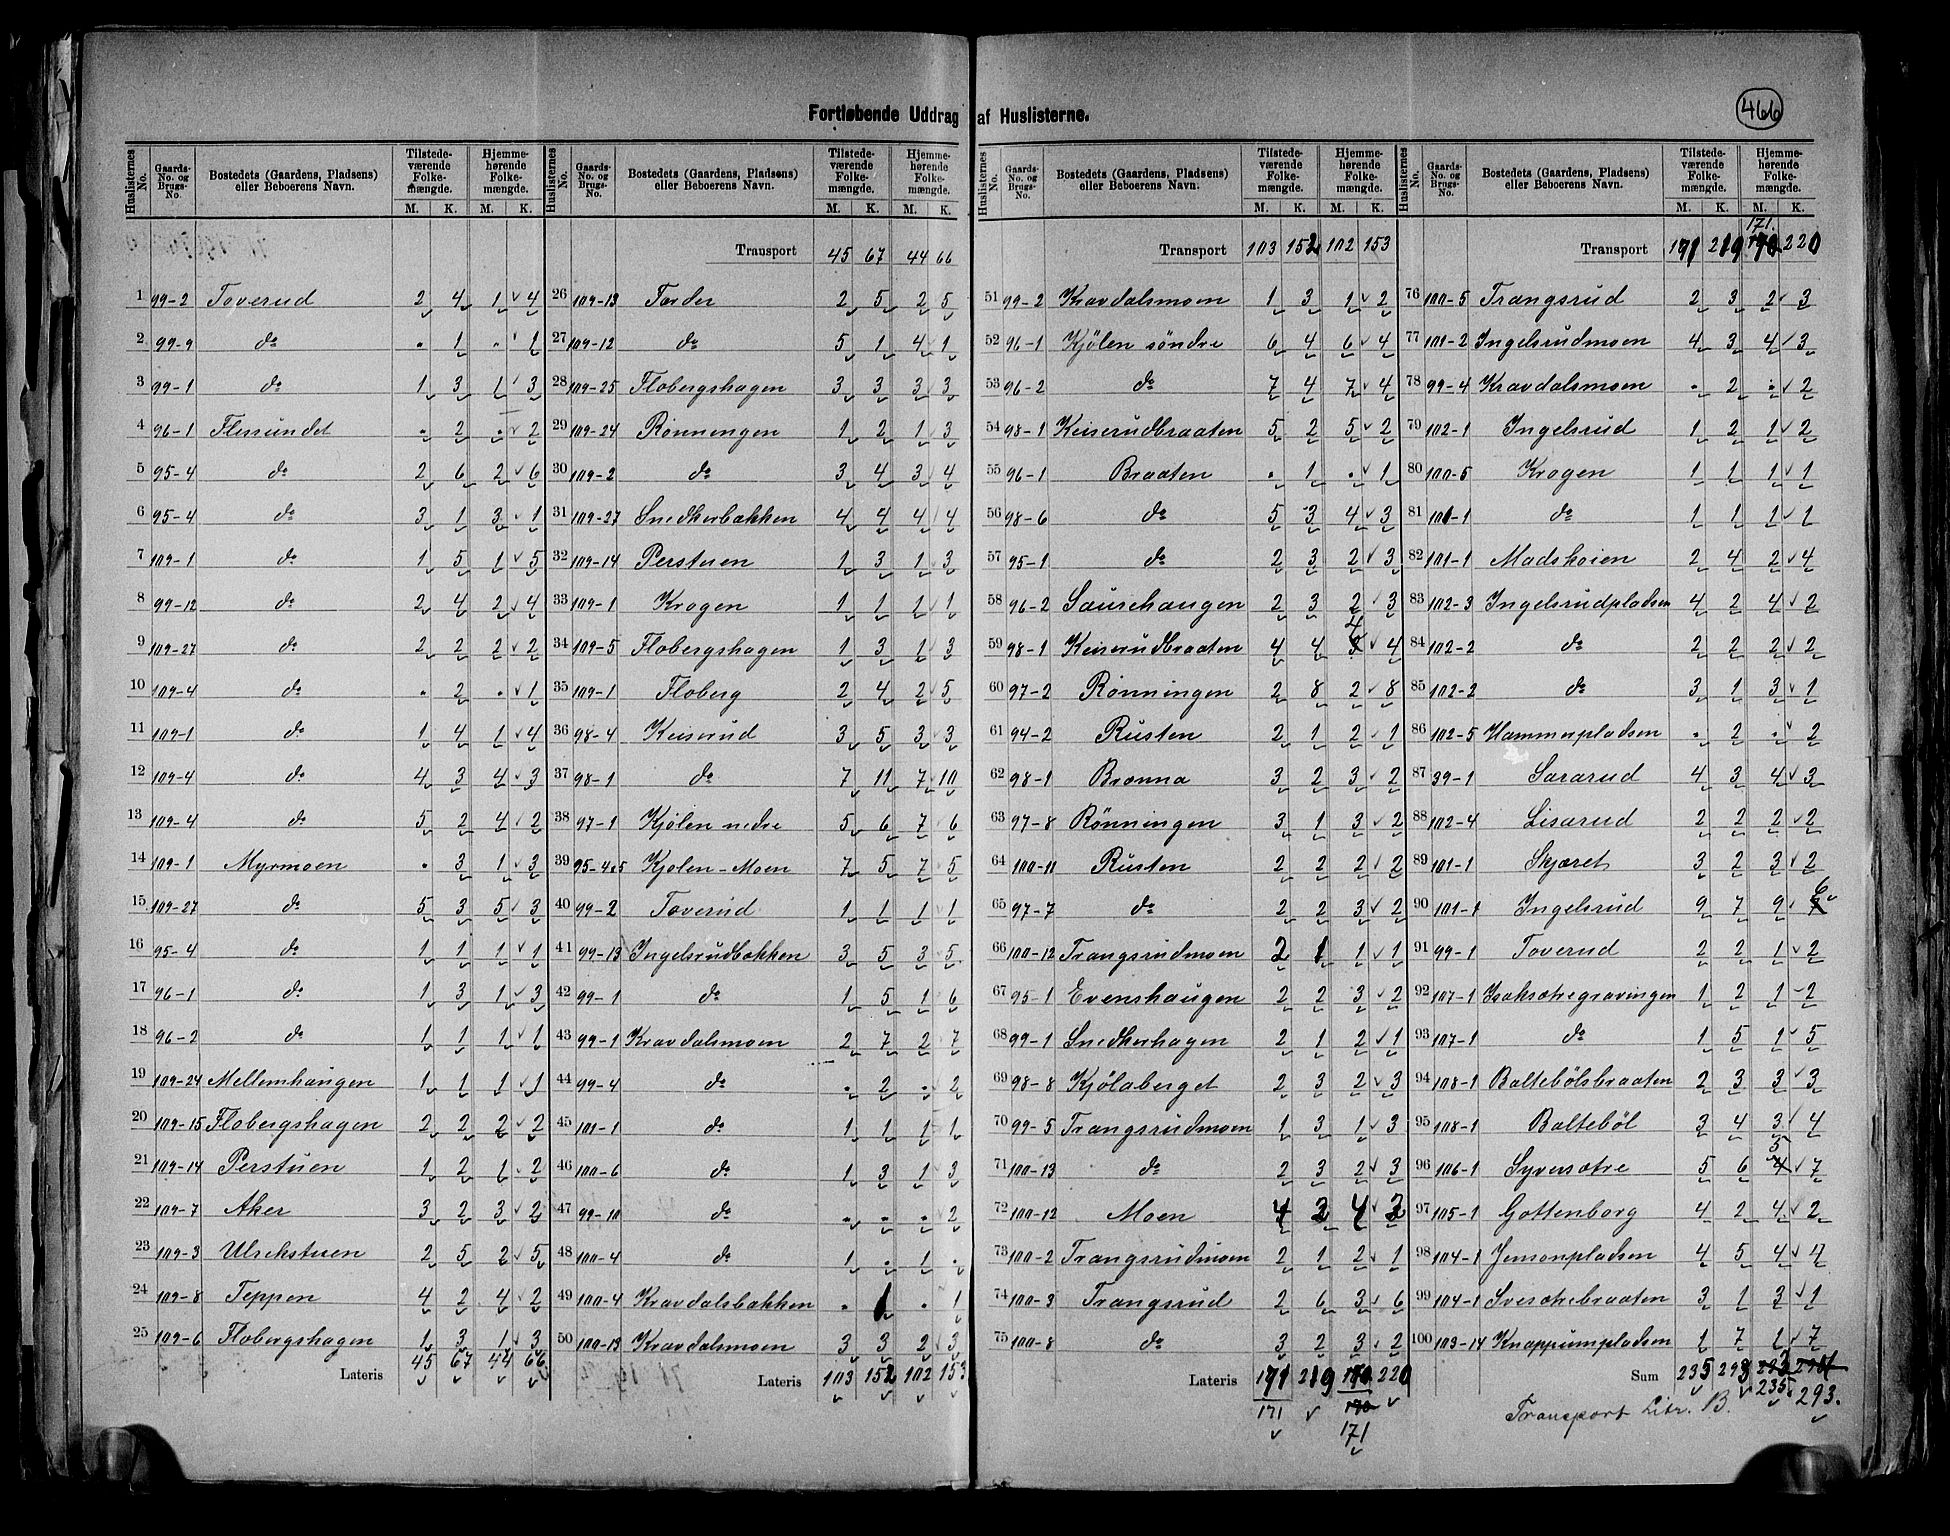 466
Fortløbende Uddrag af Huslisterne.
Huslisternes No. Gaards-No. og Brugs-No. Bostedets (Gaardens, Pladsens) eller Beboerens Navn. Tilstedeværende Folkemængde. M. K. Hjemmehørende Folkemængde. M. K.
1 99-2 Toverud 2 4 1 4
2 99-9 do . 1 . 1
3 99-1 do 1 3 1 3
4 96-1 Flessundet . 2 . 2
5 95-4 do 2 6 2 6
6 95-4 do 3 1 3 1
7 109-1 do 1 5 1 5
8 99-12 do 2 4 2 4
9 109-27 do 2 2 2 2
10 109-4 do . 2 . 1
11 109-1 do 1 4 1 4
12 109-4 do 4 3 4 3
13 109-4 do 5 2 4 2
14 109-1 Myrmoen . 3 1 3
15 109-27 do 5 3 5 3
16 95-4 do 1 1 1 1
17 96-1 do 1 3 1 3
18 96-2 do 1 1 1 1
19 109-24 Mellemhaugen 1 1 1 1
20 109-15 Flobergshagen 2 2 2 2
21 109-14 Perstuen 1 2 1 2
22 109-7 Aker 3 2 3 2
23 109-3 Ulrekstuen 2 5 2 5
24 109-8 Teppen 4 2 4 2
25 109-6 Flobergshagen 1 3 1 3
Lateris 45 67 44 66
Huslisternes No. Gaards-No. og Brugs-No. Bostedets (Gaardens, Pladsens) eller Beboerens Navn. Tilstedeværende Folkemængde. M. K. Hjemmehørende Folkemængde. M. K.
Transport 45 67 44 66
26 109-13 Forder 2 5 2 5
27 109-12 do 5 1 4 1
28 109-25 Flobergshagen 3 3 3 3
29 109-24 Rønningen 1 2 1 3
30 109-2 do 3 4 3 4
31 109-27 Snedkerbakken 4 4 4 4
32 109-14 Perstuen 1 3 1 3
33 109-1 Krogen 1 1 1 1
34 109-5 Flobergshagen 1 3 1 3
35 109-1 Floberg 2 4 2 5
36 98-4 Keiserud 3 5 3 3
37 98-1 do 7 11 7 10
38 97-1 Kjølen nedre 5 6 7 6
39 95-4,5 Kjølen-Moen 7 5 7 5
40 99-2 Toverud 1 1 1 1
41 99-13 Ingelsrudbakken 3 5 3 5
42 99-1 do 1 5 1 6
43 99-1 Kravdalsmoen 2 7 2 7
44 99-4 do . 2 . 2
45 101-1 do 1 1 1 1
46 100-6 do 1 3 1 3
47 99-10 do . . . 2
48 100-4 do 1 . 1 .
49 100-4 Kravdalsbakken . 1 . 1
50 100-13 Kravdalsmoen 3 3 2 3
Lateris 103 152 102 153
Huslisternes No. Gaards-No. og Brugs-No. Bostedets (Gaardens, Pladsens) eller Beboerens Navn. Tilstedeværende Folkemængde. M. K. Hjemmehørende Folkemængde. M. K.
Transport 103 152 102 153
51 99-2 Kravdalsmoen 1 3 1 2
52 96-1 Kjølen søndre 6 4 6 4
53 96-2 do 7 4 7 4
54 98-1 Keiserudbraaten 5 2 5 2
55 96-1 Braaten . 1 . 1
56 98-6 do 5 3 4 3
57 95-1 do 2 3 2 3
58 96-2 Saurehaugen 2 3 2 3
59 98-1 Keiserudbraaten 4 4 4 4
60 97-2 Rønningen 2 8 2 8
61 94-2 Rusten 2 1 2 1
62 98-1 Brænna 3 2 3 2
63 97-8 Rønningen 3 1 3 2
64 100-11 Rusten 2 2 2 2
65 97-7 do 2 2 3 2
66 100-12 Trangsrudmoen 2 1 1 1
67 95-1 Evenshaugen 2 2 3 2
68 99-1 Snedkerhagen 2 1 2 1
69 98-8 Kjølaberget 2 3 2 3
70 99-5 Trangsrudmoen 1 3 1 3
71 100-13 do 2 3 2 3
72 100-12 Moen 4 3 4 3
73 100-2 Trangsrudmoen 2 1 2 1
74 100-3 Trangsrud 2 6 3 6
75 100-8 do 3 2 3 2
Lateris 171 219 170 220
171 170
171
Huslisternes No. Gaards-No. og Brugs-No. Bostedets (Gaardens, Pladsens) eller Beboerens Navn. Tilstedeværende Folkemængde. M. K. Hjemmehørende Folkemængde. M. K.
171.
Transport 171 219 170 220
76 100-5 Trangsrud 2 3 2 3
77 101-2 Ingelsrudmoen 4 3 4 3
78 99-4 Kravdalsmoen . 2 . 2
79 102-1 Ingelsrud 1 2 1 2
80 100-5 Krogen 1 1 1 1
81 101-1 do 1 1 1 1
82 101-1 Madshøien 2 4 2 4
83 102-3 Ingelsrudpladsen 4 2 4 2
84 102-2 do 2 2 2 2
85 102-2 do 3 1 3 1
86 102-5 Hammerpladsen . 2 . 2
87 39-1 Sararud 4 3 4 3
88 102-4 Lisarud 2 2 2 2
89 101-1 Skjæret 3 2 3 2
90 101-1 Ingelsrud 9 7 9 6
91 99-1 Toverud 2 2 1 2
92 107-1 Isaksætregravingen 1 2 1 2
93 107-1 do 1 5 1 5
94 108-1 Baltebølsbraaten 2 3 3 3
95 108-1 Baltebøl 3 4 3 4
96 106-1 Syversætre 5 6 5 4 7
97 105-1 Gottenborg 4 2 4 2
98 104-1 Jensonpladsen 4 5 4 4
99 104-1 Svesætrebraaten 3 1 3 1
100 103-14 Knappumpladsen 1 7 1 7
Sum 235 293
235 293.
Transport Litr. B.